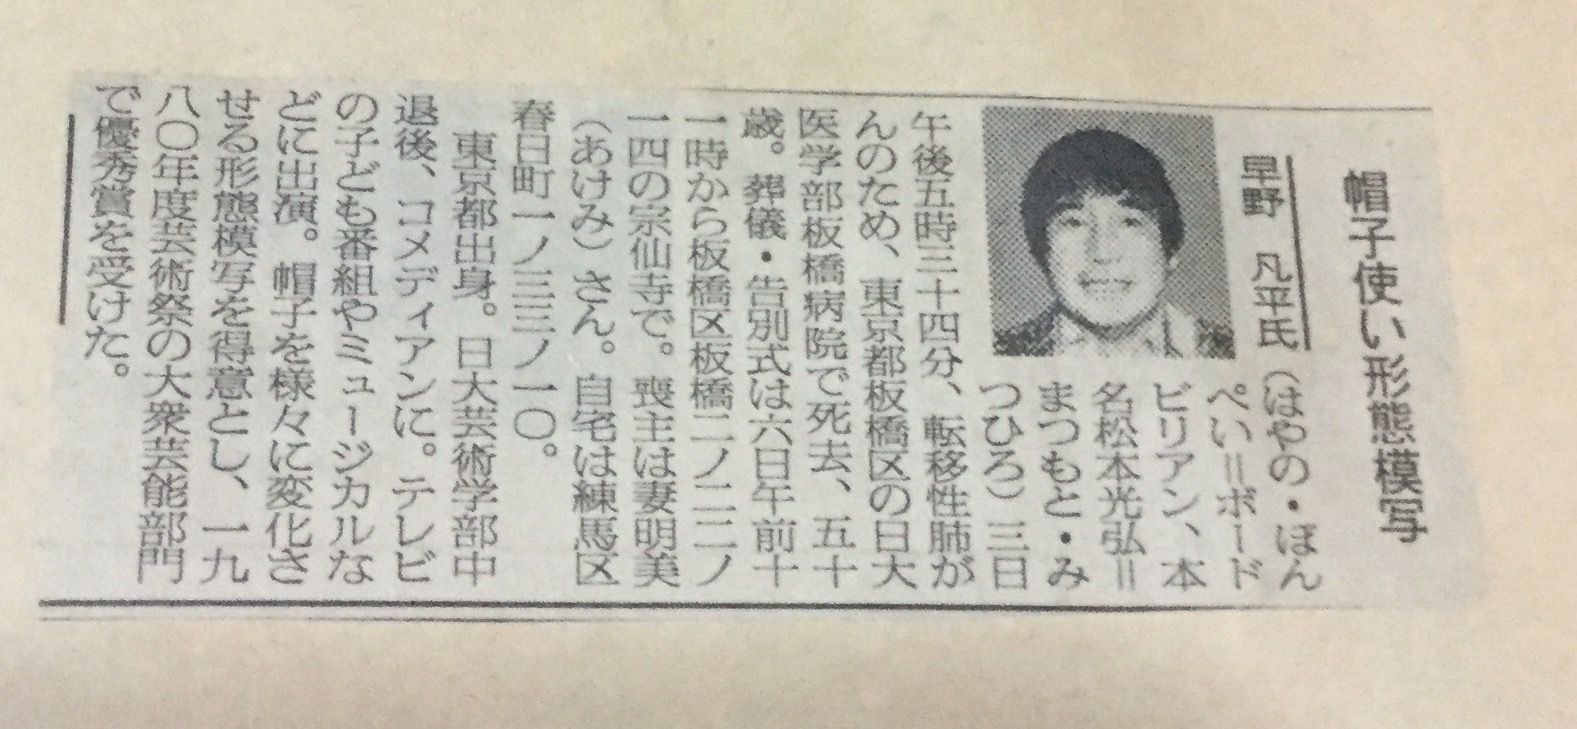 帽子使い形態模写
早野　凡平氏（はやの・ぼん
ぺい＝ボード
ビリアン、本
名松本光弘＝
まつもと・み
つひろ）三日
午後五時三十四分、転移性肺が
んのため、東京都板橋区の日大
医学部板橋病院で死去、五十
歳。葬儀・告別式は六日午前十
一時から板橋区板橋二ノ二二ノ
一四の宗仙寺で。喪主は妻明美
（あけみ）さん。自宅は練馬区
春日町一ノ三三ノ一〇。
東京都出身。日大芸術学部中
退後、コメディアンに。テレビ
の子ども番組やミュージカルな
どに出演。帽子を様々に変化さ
せる形態模写を得意とし、一九
八〇年度芸術祭の大衆芸能部門
で優秀賞を受けた。